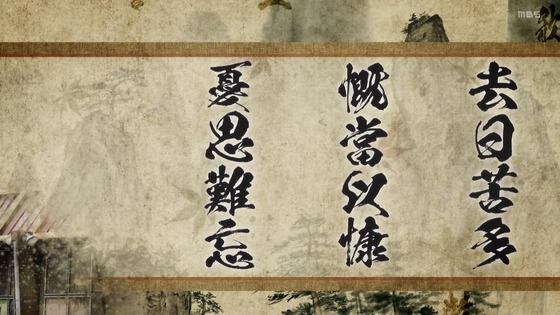 去日苦多
慨當以慷
憂思難忘
MBS